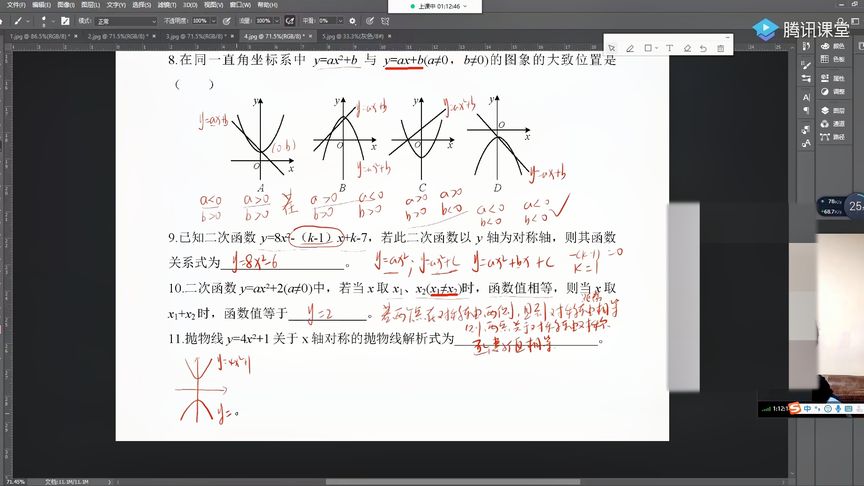 上课中 01:12:46
文件(F) 编辑(E) 图像(I) 图层(L) 文字(Y) 选择(S) 滤镜(T) 3D(D) 视图(V) 窗口(W) 帮助(H)
模式: 正常 不透明度: 100% 流量: 100% 平滑: 0%
1.jpg @ 86.5%(RGB/8) * 2.jpg @ 71.5%(RGB/8) * 3.jpg @ 71.5%(RGB/8) * 4.jpg @ 71.5%(RGB/8) * 5.jpg @ 33.3%(灰色/8#)
腾讯课堂
颜色
色板
属性
调整
图层
通道
路径
8.在同一直角坐标系中 y=ax²+b 与 y=ax+b(a≠0，b≠0)的图象的大致位置是
（ ）
y=ax+b (0,b) y x O A
y=ax+b y=ax²+b y x O B
y=ax²+b y x O C
y=ax+b y x O D
a<0 a>0 在 a>0 a<0 a>0 a>0 a<0 a<0
b>0 b>0 b>0 b>0 b>0 b<0 b<0 b<0
9.已知二次函数 y=8x²-（k-1）x+k-7，若此二次函数以 y 轴为对称轴，则其函数
关系式为 y=8x²-6 。 y=ax²; y=ax²+c y=ax²+bx+c -(k-1)=0
k=1
10.二次函数 y=ax²+2(a≠0)中，若当 x 取 x₁、x₂(x₁≠x₂)时，函数值相等，则当 x 取
x₁+x₂ 时，函数值等于 y=2 。 若两点在对称轴两侧，且到对称轴距离相等
11.抛物线 y=4x²+1 关于 x 轴对称的抛物线解析式为 。
y=4x²+1
y=
71.45% 文档:11.1M/11.1M
78
+68.7
25
中